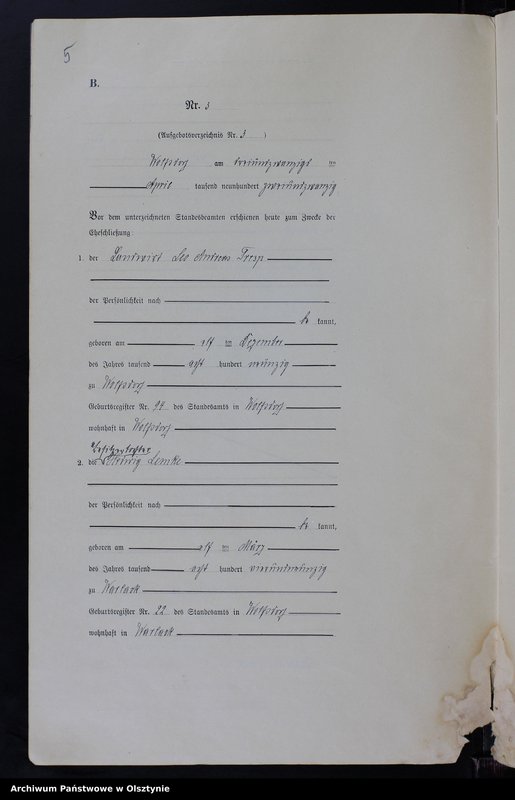 5
B.
Nr. 3
(Aufgebotsverzeichnis Nr. 3 )
Wolfsdorf am dreiundzwanzigsten
April tausend neunhundert zweiundzwanzig
Vor dem unterzeichneten Standesbeamten erschienen heute zum Zwecke der
Eheschließung:
1. der Landwirt Leo Andreas Tresp
der Persönlichkeit nach
be kannt,
geboren am elf ten Dezember
des Jahres tausend acht hundert neunzig
zu Wolfsdorf
Geburtsregister Nr. 94 des Standesamts in Wolfsdorf
wohnhaft in Wolfsdorf
Besitzertochter
2. der Hedwig Lemke
der Persönlichkeit nach
be kannt,
geboren am elf ten März
des Jahres tausend acht hundert vierundneunzig
zu Warlack
Geburtsregister Nr. 22 des Standesamts in Wolfsdorf
wohnhaft in Warlack
Archiwum Państwowe w Olsztynie